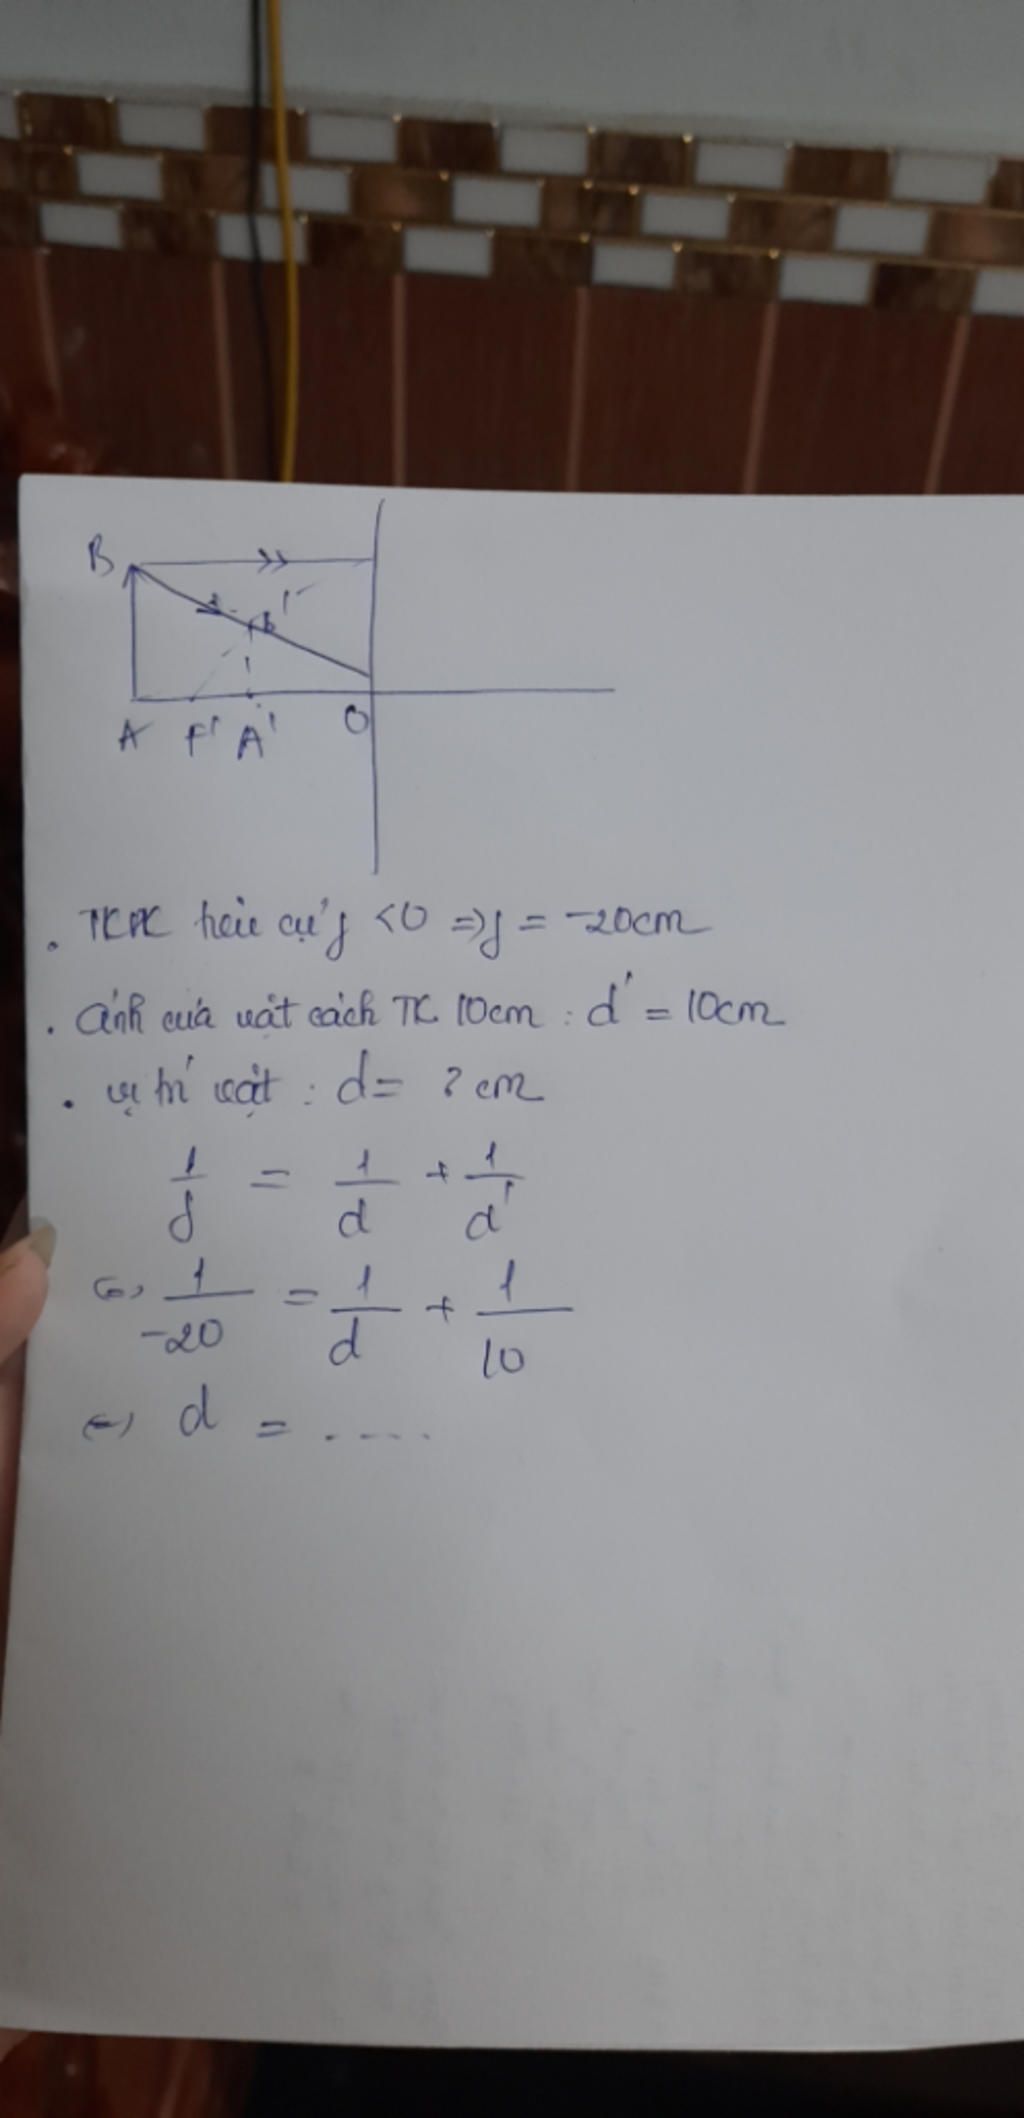 B
B'
A F' A' O
. TKPK tiêu cự f <0 => f = -20cm
. ảnh của vật cách TK 10cm : d' = 10cm
. vị trí vật : d = ? cm
1/f = 1/d + 1/d'
<=> 1/-20 = 1/d + 1/10
<=> d = ....